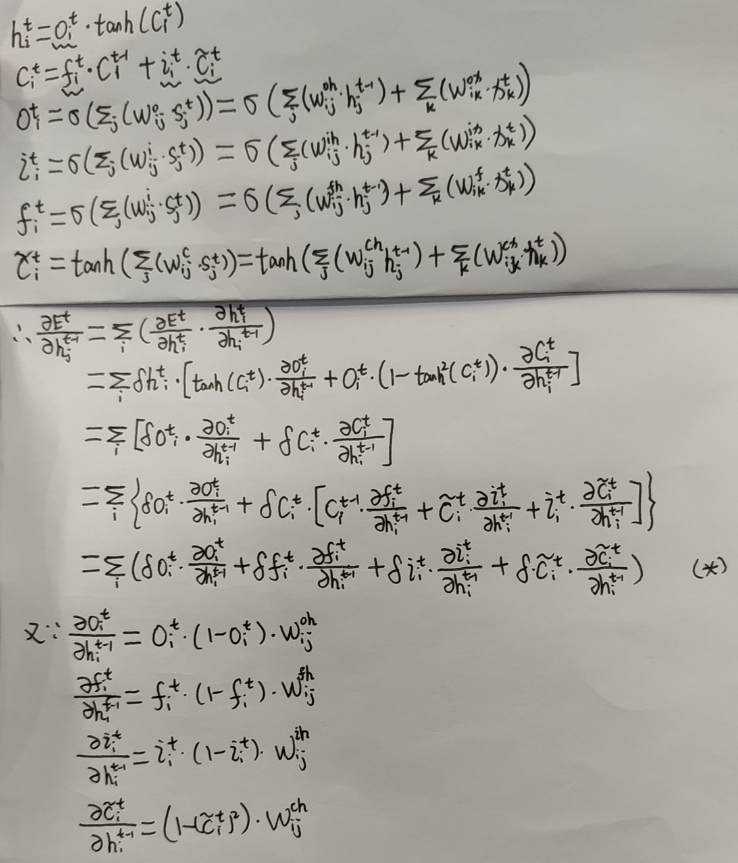 hᵢᵗ = oᵢᵗ · tanh(Cᵢᵗ)
Cᵢᵗ = fᵢᵗ · Cᵢᵗ⁻¹ + iᵢᵗ · C̃ᵢᵗ
oᵢᵗ = σ(Σ_j(w_{ij}^{o} · s_j^t)) = σ(Σ_j(w_{ij}^{oh} · h_j^{t-1}) + Σ_k(w_{ik}^{ox} · x_k^t))
iᵢᵗ = σ(Σ_j(w_{ij}^{i} · s_j^t)) = σ(Σ_j(w_{ij}^{ih} · h_j^{t-1}) + Σ_k(w_{ik}^{ix} · x_k^t))
fᵢᵗ = σ(Σ_j(w_{ij}^{i} · s_j^t)) = σ(Σ_j(w_{ij}^{fh} · h_j^{t-1}) + Σ_k(w_{ik}^{f} · x_k^t))
C̃ᵢᵗ = tanh(Σ_j(w_{ij}^{c} · s_j^t)) = tanh(Σ_j(w_{ij}^{ch} h_j^{t-1}) + Σ_k(w_{ik}^{cx} · x_k^t))
∴ ∂Eᵗ/∂h_j^{t-1} = Σ_i(∂Eᵗ/∂hᵢᵗ · ∂hᵢᵗ/∂hᵢᵗ⁻¹)
= Σ_i δhᵢᵗ · [tanh(Cᵢᵗ) · ∂oᵢᵗ/∂hᵢᵗ⁻¹ + oᵢᵗ · (1 - tanh²(Cᵢᵗ)) · ∂Cᵢᵗ/∂hᵢᵗ⁻¹]
= Σ_i [δoᵢᵗ · ∂oᵢᵗ/∂hᵢᵗ⁻¹ + δCᵢᵗ · ∂Cᵢᵗ/∂hᵢᵗ⁻¹]
= Σ_i {δoᵢᵗ · ∂oᵢᵗ/∂hᵢᵗ⁻¹ + δCᵢᵗ · [Cᵢᵗ⁻¹ · ∂fᵢᵗ/∂hᵢᵗ⁻¹ + C̃ᵢᵗ · ∂iᵢᵗ/∂hᵢᵗ⁻¹ + iᵢᵗ · ∂C̃ᵢᵗ/∂hᵢᵗ⁻¹]}
= Σ_i (δoᵢᵗ · ∂oᵢᵗ/∂hᵢᵗ⁻¹ + δfᵢᵗ · ∂fᵢᵗ/∂hᵢᵗ⁻¹ + δiᵢᵗ · ∂iᵢᵗ/∂hᵢᵗ⁻¹ + δ·C̃ᵢᵗ · ∂C̃ᵢᵗ/∂hᵢᵗ⁻¹) (*)
又∵ ∂oᵢᵗ/∂hᵢᵗ⁻¹ = oᵢᵗ · (1-oᵢᵗ) · w_{ij}^{oh}
∂fᵢᵗ/∂hᵢᵗ⁻¹ = fᵢᵗ · (1-fᵢᵗ) · w_{ij}^{fh}
∂iᵢᵗ/∂hᵢᵗ⁻¹ = iᵢᵗ · (1-iᵢᵗ) · w_{ij}^{ih}
∂C̃ᵢᵗ/∂hᵢᵗ⁻¹ = (1-(C̃ᵢᵗ)²) · w_{ij}^{ch}